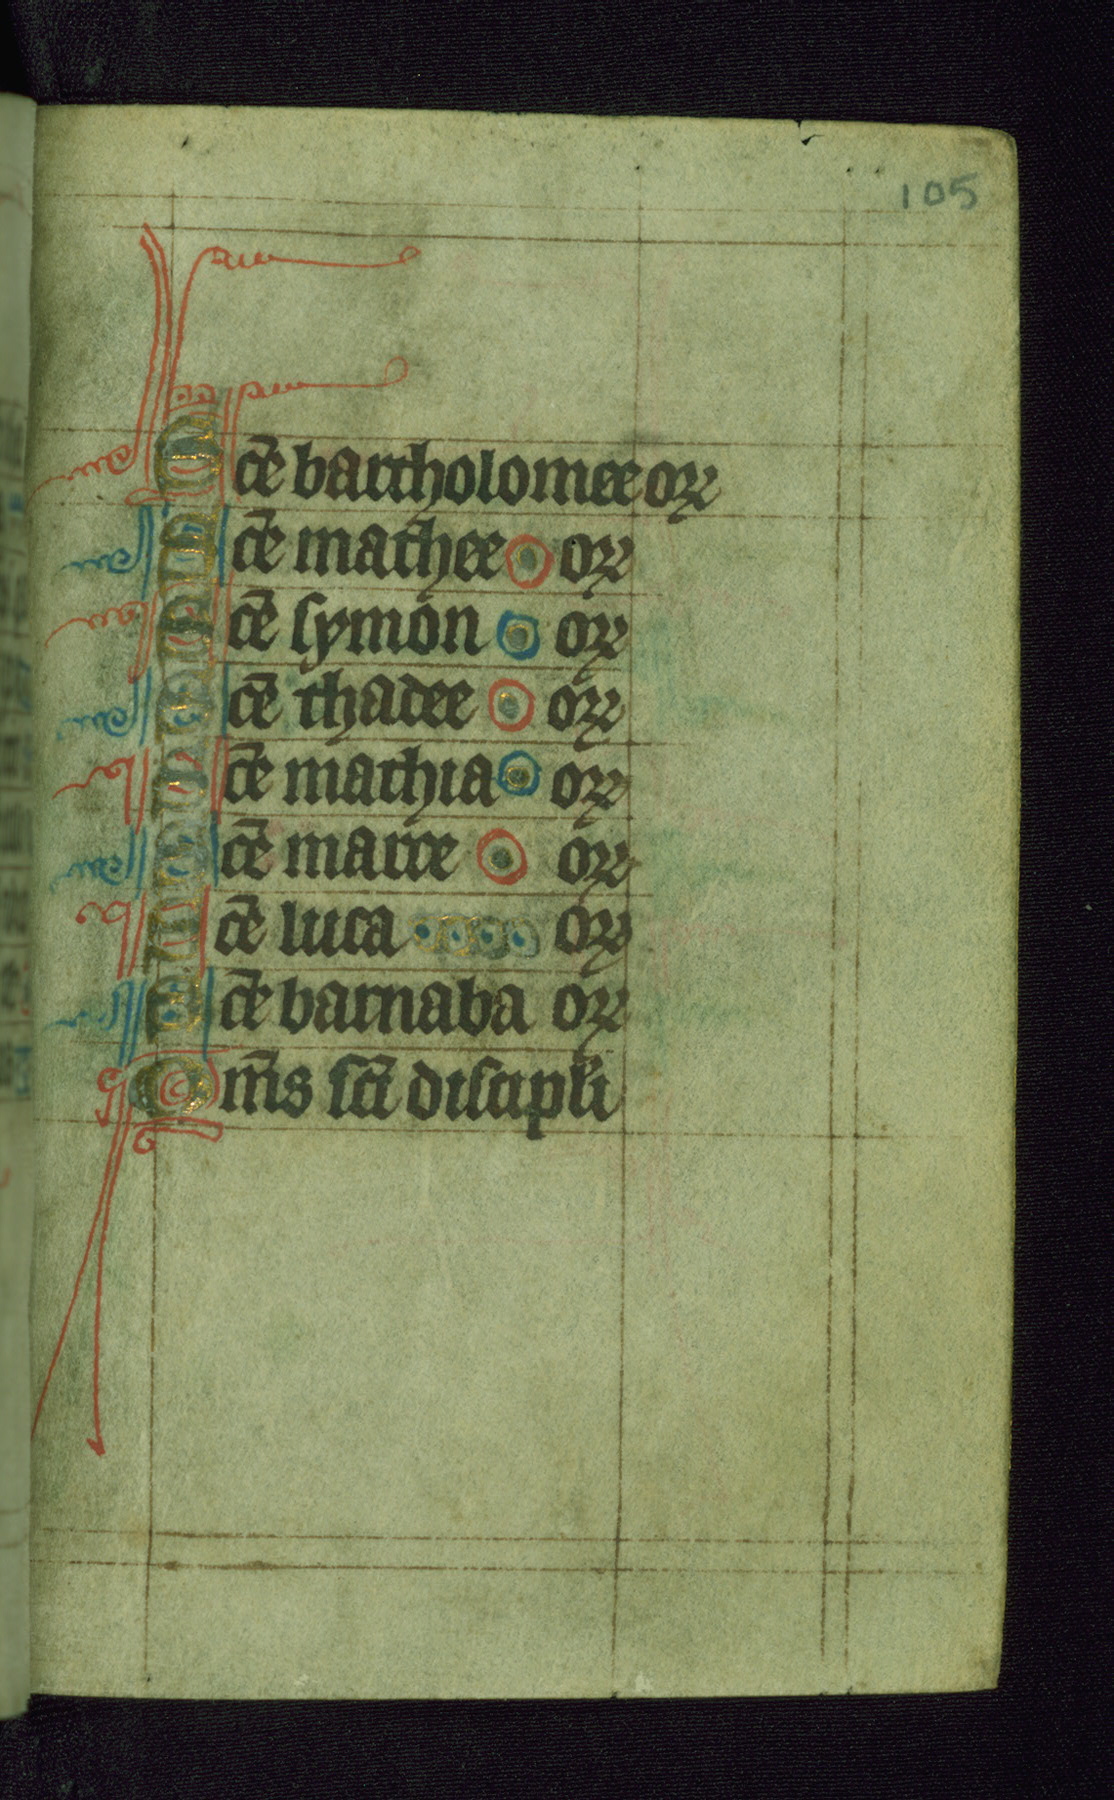 105
Sc̄e bartholomee oꝝ
Sc̄e mathee oꝝ
Sc̄e symon oꝝ
Sc̄e thadee oꝝ
Sc̄e mathia oꝝ
Sc̄e marce oꝝ
Sc̄e luca oꝝ
Sc̄e barnaba oꝝ
Om̄s sc̄i discipl̄i